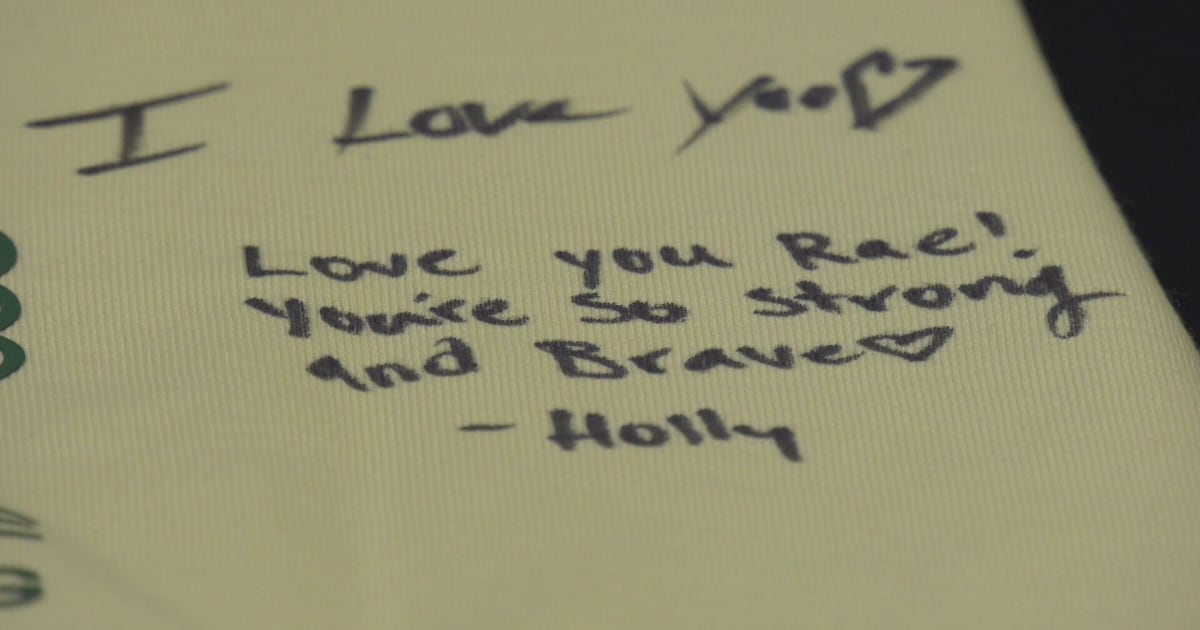 I Love you♡
Love you Rae!
You're so strong
and Brave♡
- Holly